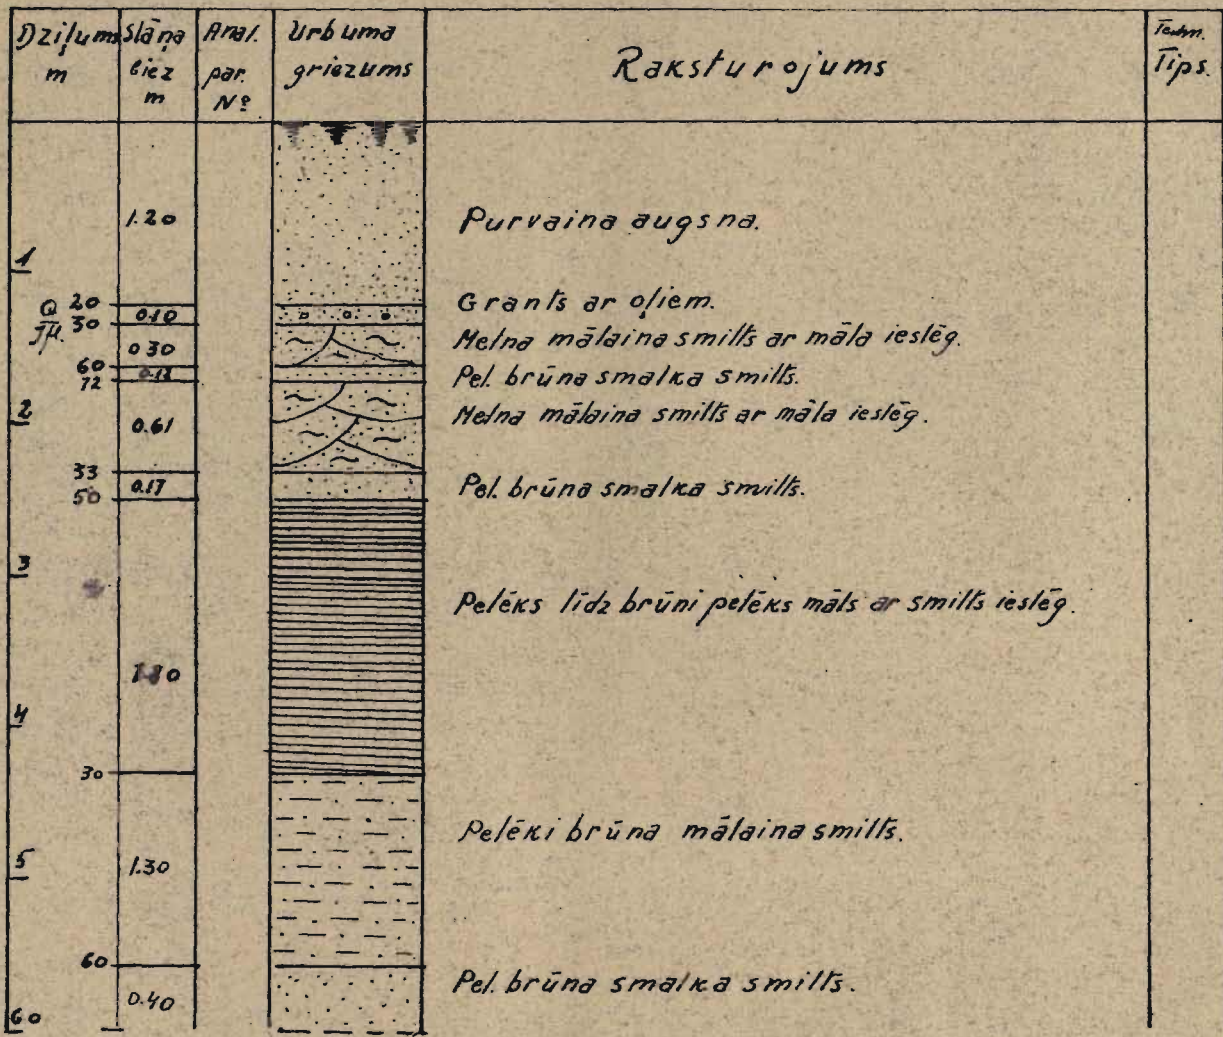 Dziļums m
Slāņa biez m
Anal. par. №
Urbuma griezums
Raksturojums
Techn. Tips.
1.20
Purvaina augsna.
1
20
Grants ar oļiem.
Q
0.10
30
0.30
Melna mālaina smilts ar māla ieslēg.
60
0.12
Pel. brūna smalka smilts.
72
2
0.61
Melna mālaina smilts ar māla ieslēg.
33
0.17
Pel. brūna smalka smilts.
50
3
Pelēks līdz brūni pelēks māls ar smilts ieslēg.
4
30
Pelēki brūna mālaina smilts.
5
1.30
60
Pel. brūna smalka smilts.
0.40
60